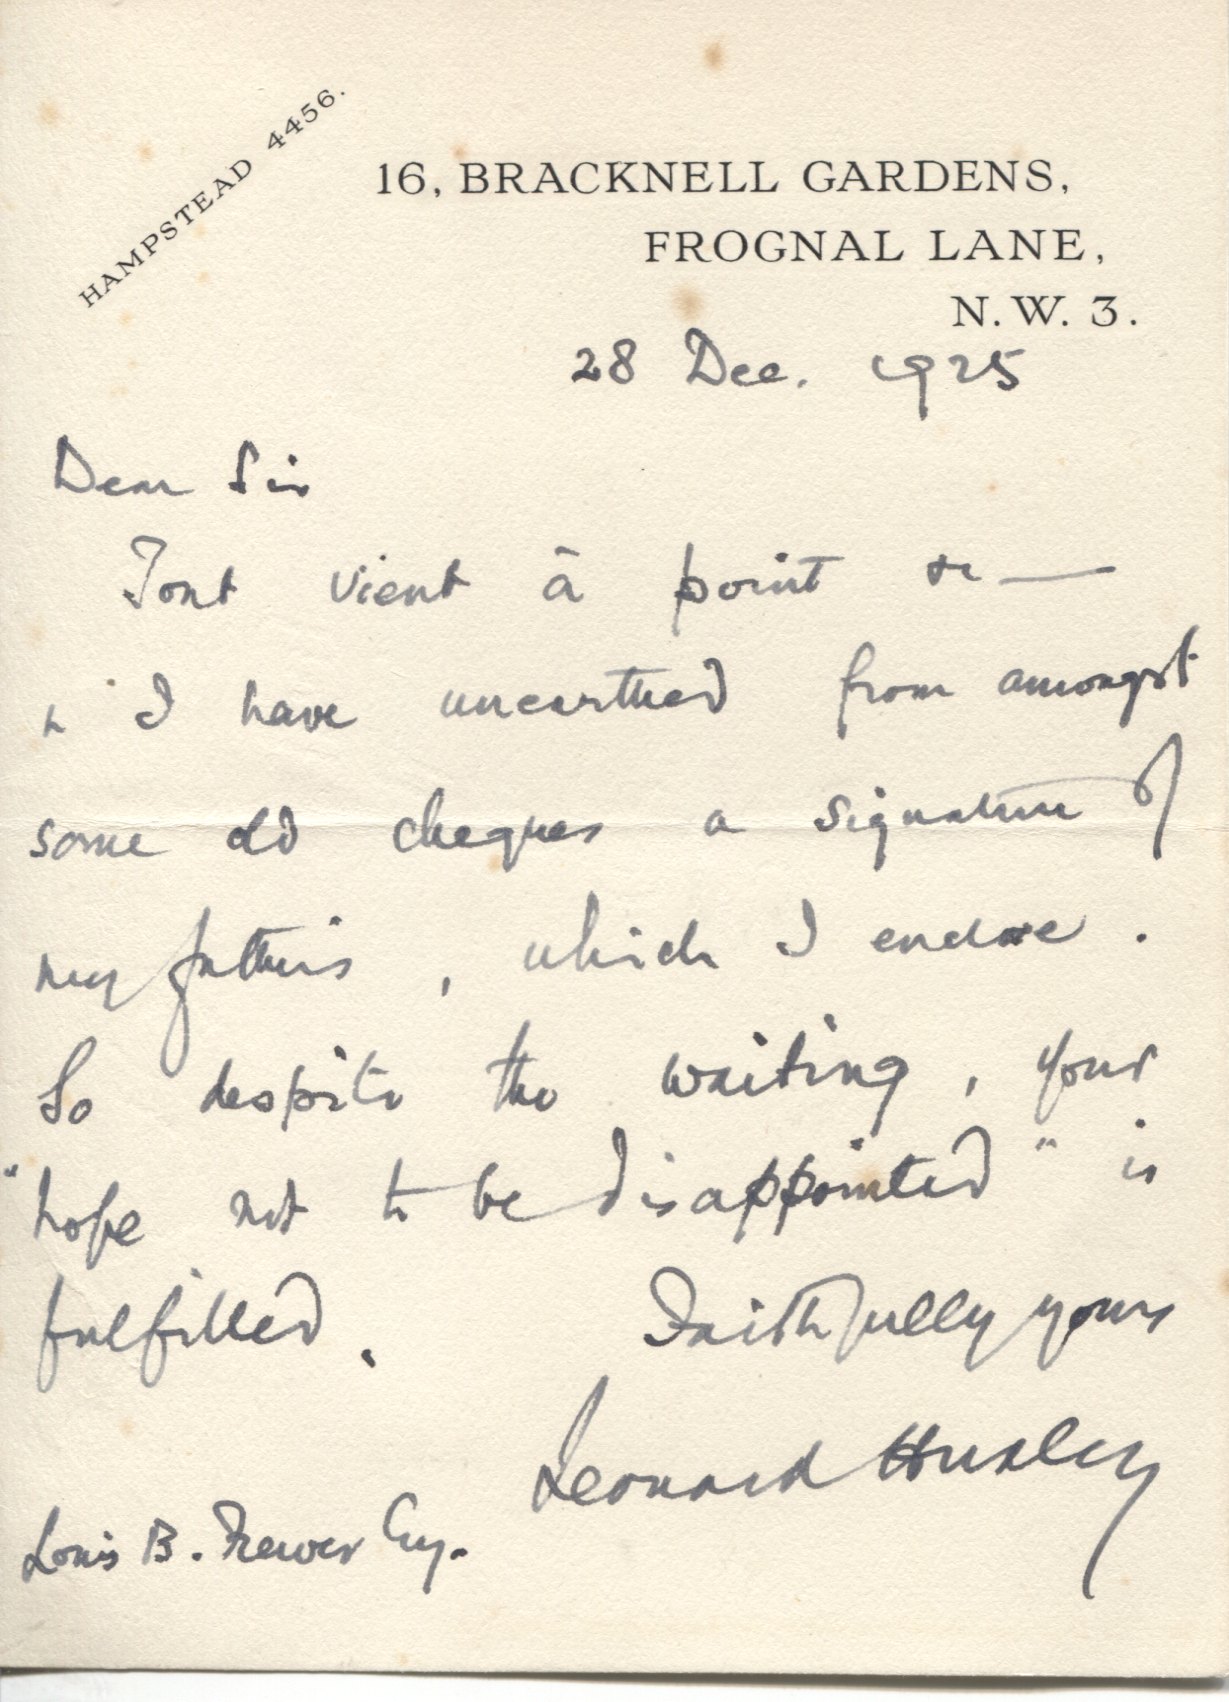 HAMPSTEAD 4456.
16, BRACKNELL GARDENS,
FROGNAL LANE,
N.W. 3.
28 Dec. 1925
Dear Sir
Tout vient à point &c —
& I have unearthed from amongst
some old cheques a signature of
my father's, which I enclose.
So despite the waiting, your
"hope not to be disappointed" is
fulfilled. Faithfully yours
Leonard Huxley
Louis B. Frewer Esq.